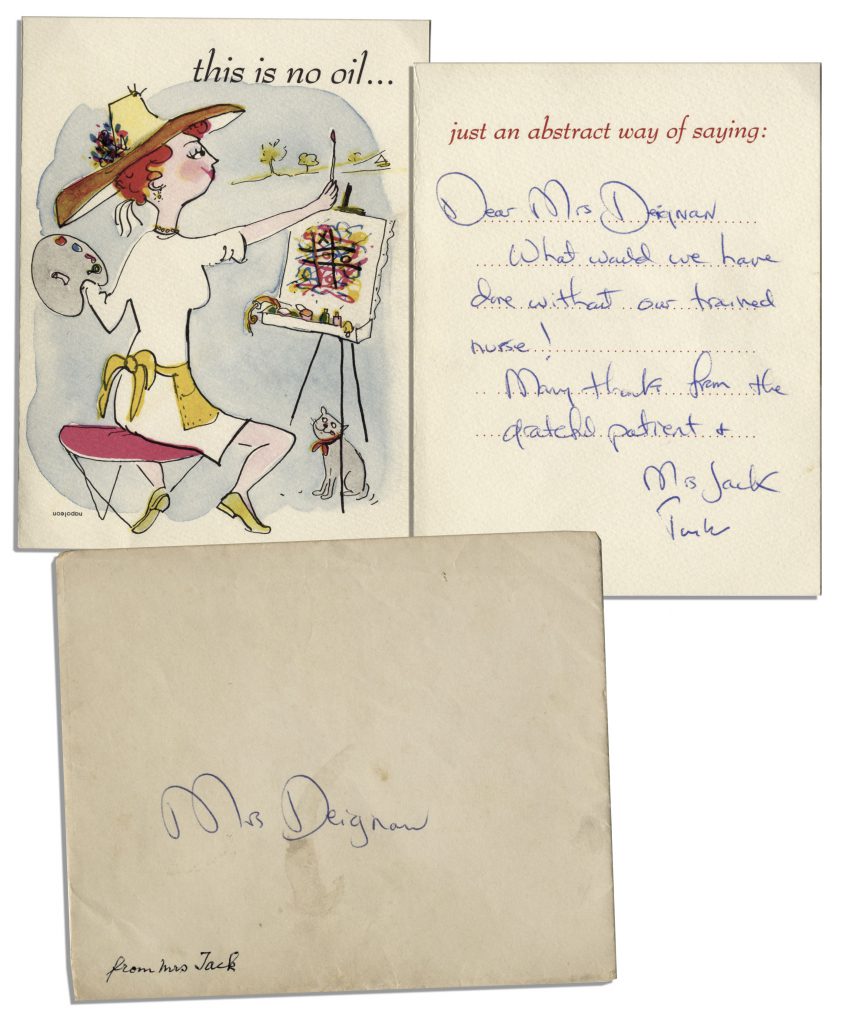 this is no oil...
napoleon
just an abstract way of saying:
Dear Mrs Deignan
What would we have
done without our trained
nurse!
Many thanks from the
grateful patient +
Mrs Jack
Mrs Deignan
from Mrs Jack